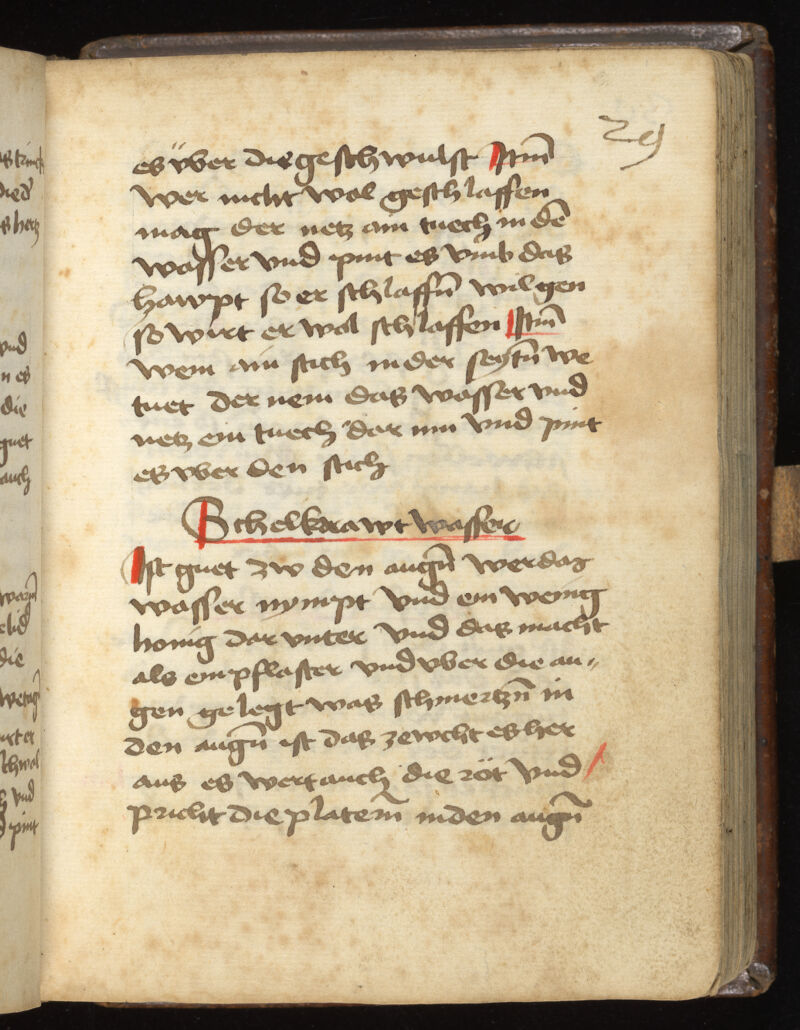 29
es über die geschwulst Itm̄
wer nicht wol geschlaffen
mag der netz ain tuech in dē
wasser vnd pint es vmb das
hawpt so er schlaffn̄ wil gen
so wirt er wol schlaffen Itm̄
wem ain stich in der seytn̄ we
tuet der nem das wasser vnd
netz ein tuech dar inn vnd pint
es vber den stich
Schelkrawt wasser
Ist guet zw den augn̄ wer das
wasser nympt vnd ein wenig
honig dar vnter vnd das macht
als ein pflaster vnd vber die au-
gen gelegt was schmertzn̄ in
den augn̄ ist das zewcht es her
aus es wert auch die röt vnd
pricht die platern̄ in den augn̄